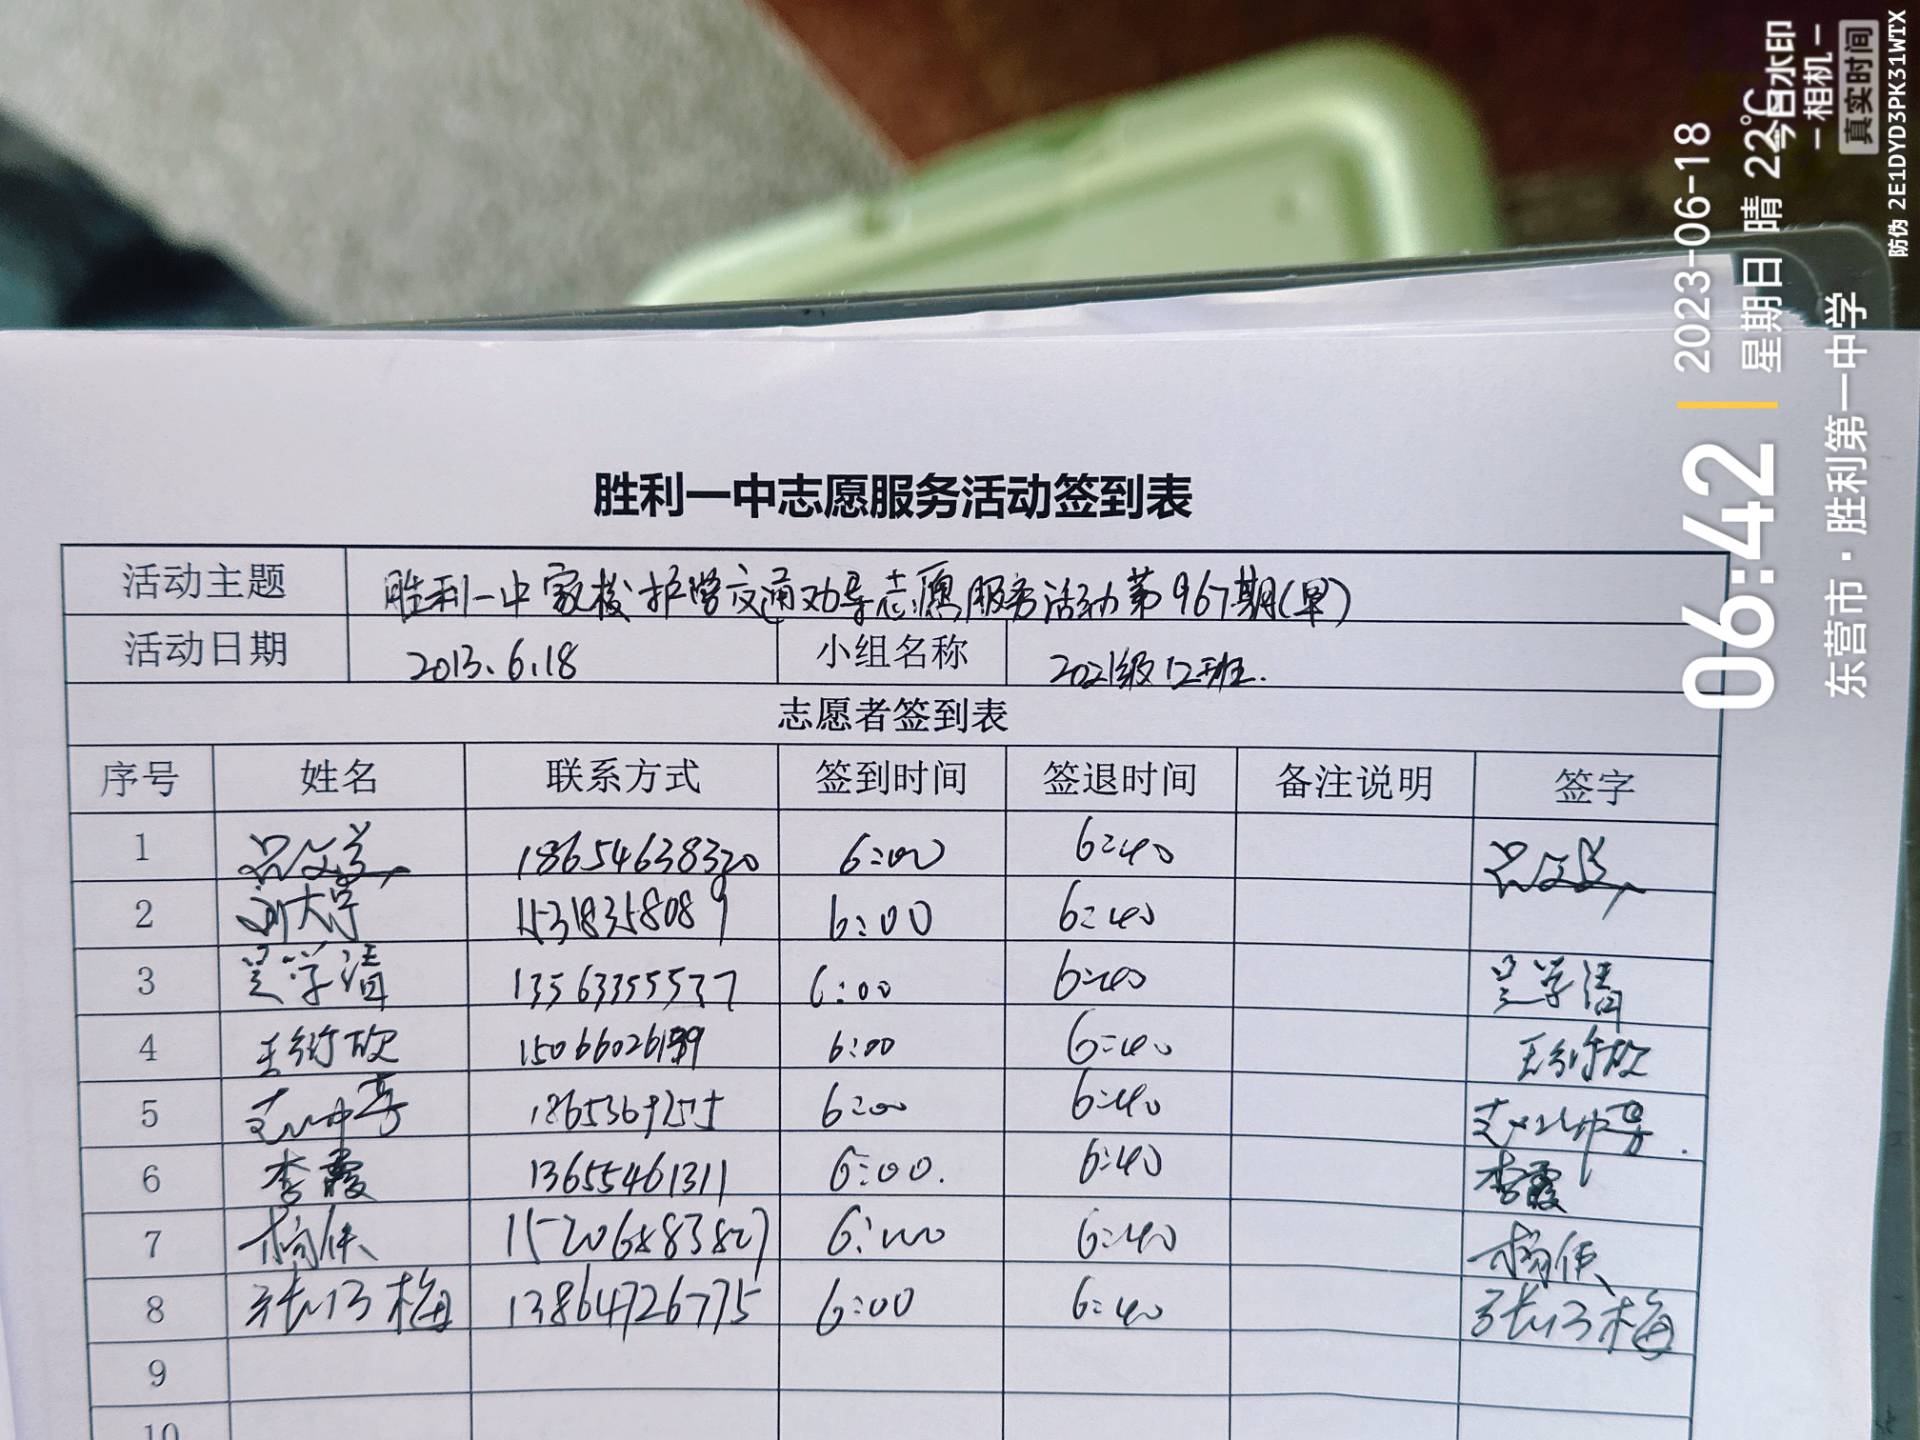 胜利一中志愿服务活动签到表
活动主题 胜利一中家校护学交通劝导志愿服务活动第967期(早)
活动日期 2013.6.18 小组名称 2021级12班.
志愿者签到表
序号 姓名 联系方式 签到时间 签退时间 备注说明 签字
1 18654638320 6:00 6:40
2 刘大宇 15318358089 6:00 6:40
3 吴学清 13563355537 6:00 6:40 吴学清
4 6:00 6:40
5 1865369255 6:00 6:40
6 李霞 13655461311 6:00. 6:40 李霞
7 杨佚 15206883807 6:00 6:40 杨佚
8 13864726775 6:00 6:40
9
10
06:42
2023-06-18
星期日 晴 22℃
东营市·胜利第一中学
今日水印
相机
真实时间
防伪 2E1DYD3PK31WTX